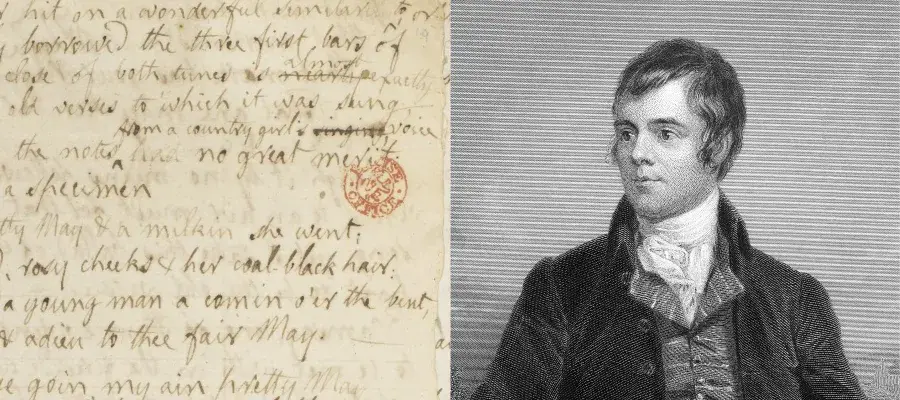 hit on a wonderful similar
borrowed the three first bars of
close of both tunes is almost exactly
old verses to which it was sung
from a country girl's voice
the notes had no great merit.
a specimen
OFFICE
tty May & a milkin she went;
rosy cheeks & her coal-black hair;
a young man a comin o'er the bent,
& adieu to thee fair May.
goin my ain pretty May